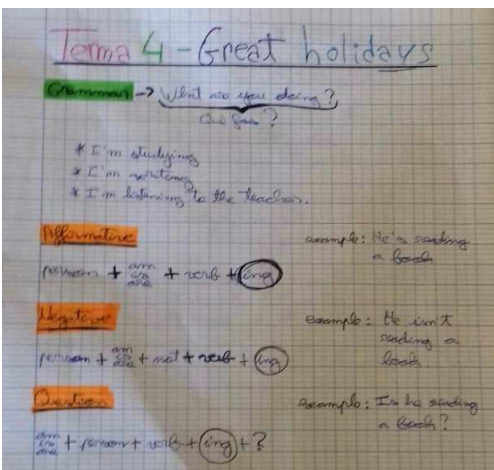 Tema 4 - Great holidays
Grammar -> What are you doing?
Qué fas?
* I'm studying
* I'm writing
* I'm listening to the teacher.
Affirmative
example: He's reading
a book
person + am is are + verb + ing
Negative
example: He isn't
reading a
book
person + am is are + not + verb + ing
Question
example: Is he reading
a book?
am is are + person + verb + ing + ?